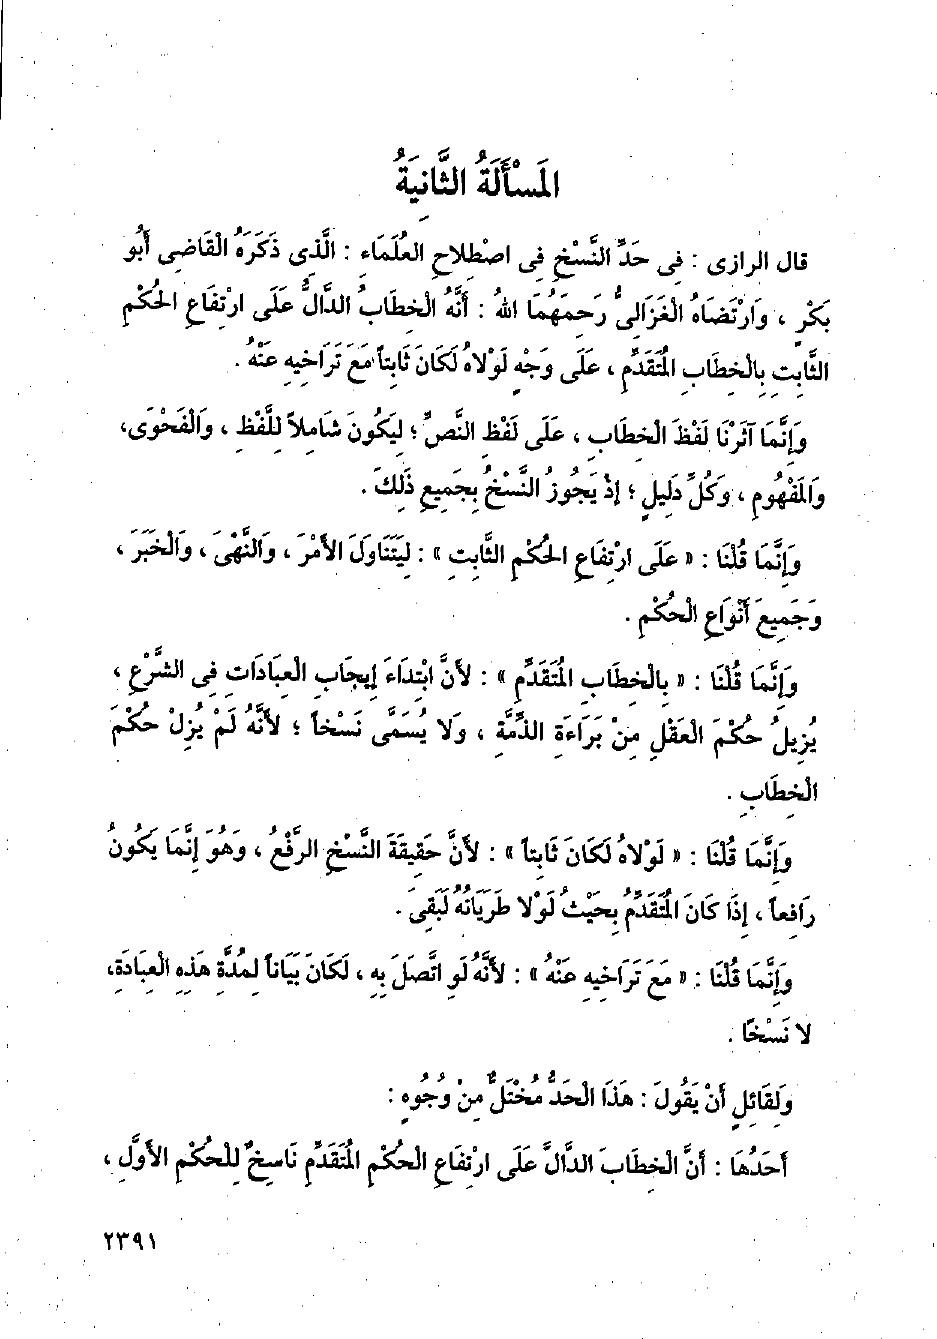 المَسْأَلَةُ الثَّانِيَةُ
قال الرازى : فِى حَدِّ النَّسْخِ فِى اصْطِلاحِ العُلَمَاءِ : الَّذِى ذَكَرَهُ الْقَاضِى أَبُو
بَكْرٍ ، وَارْتَضَاهُ الْغَزَالِىُّ رَحِمَهُمَا اللهُ : أَنَّهُ الْخِطَابُ الدَّالُّ عَلَى ارْتِفَاعِ الحُكْمِ
الثَّابِتِ بِالْخِطَابِ المُتَقَدِّمِ ، عَلَى وَجْهٍ لَوْلاهُ لَكَانَ ثَابِتاً مَعَ تَرَاخِيهِ عَنْهُ .
وَإِنَّمَا آثَرْنَا لَفْظَ الْخِطَابِ ، عَلَى لَفْظِ النَّصِّ ؛ لِيَكُونَ شَامِلاً لِلَّفْظِ ، وَالْفَحْوَى،
وَالمَفْهُومِ ، وَكُلِّ دَلِيلٍ ؛ إِذْ يَجُوزُ النَّسْخُ بِجَمِيعِ ذَلِكَ .
وَإِنَّمَا قُلْنَا : « عَلَى ارْتِفَاعِ الحُكْمِ الثَّابِتِ » : لِيَتَنَاوَلَ الأَمْرَ ، وَالنَّهْىَ ، وَالْخَبَرَ ،
وَجَمِيعَ أَنْوَاعِ الْحُكْمِ .
وَإِنَّمَا قُلْنَا : « بِالْخِطَابِ المُتَقَدِّمِ » : لأَنَّ ابْتِدَاءَ إِيجَابِ الْعِبَادَاتِ فِى الشَّرْعِ ،
يُزِيلُ حُكْمَ الْعَقْلِ مِنْ بَرَاءَةِ الذِّمَّةِ ، وَلا يُسَمَّى نَسْخاً ؛ لأَنَّهُ لَمْ يُزِلْ حُكْمَ
الْخِطَابِ .
وَإِنَّمَا قُلْنَا : « لَوْلاهُ لَكَانَ ثَابِتاً » : لأَنَّ حَقِيقَةَ النَّسْخِ الرَّفْعُ ، وَهُوَ إِنَّمَا يَكُونُ
رَافِعاً ، إِذَا كَانَ المُتَقَدِّمُ بِحَيْثُ لَوْلا طَرَيَانُهُ لَبَقِىَ .
وَإِنَّمَا قُلْنَا : « مَعَ تَرَاخِيهِ عَنْهُ » : لأَنَّهُ لَو اتَّصَلَ بِهِ ، لَكَانَ بَيَاناً لِمُدَّةِ هَذِهِ الْعِبَادَةِ،
لا نَسْخًا .
وَلِقَائِلٍ أَنْ يَقُولَ : هَذَا الْحَدُّ مُخْتَلٌّ مِنْ وُجُوهٍ :
أَحَدُهَا : أَنَّ الْخِطَابَ الدَّالَّ عَلَى ارْتِفَاعِ الْحُكْمِ المُتَقَدِّمِ نَاسِخٌ لِلْحُكْمِ الأَوَّلِ ،
٢٣٩١